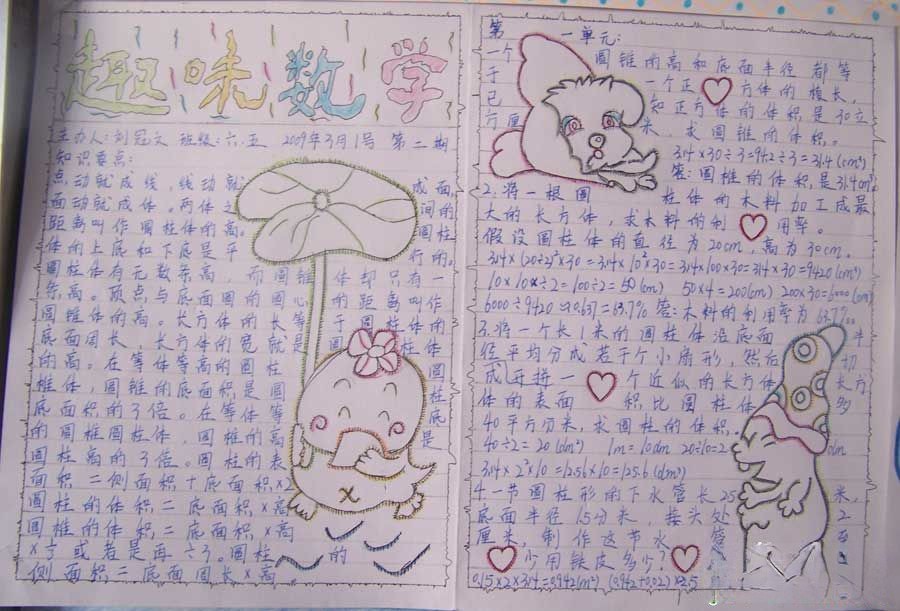 趣味数学
主办人:刘冠文 班级:六.五 2009年3月1号 第二期
知识要点:
点动就成线,线动就成面,
面动就成体。两体之间的
距离叫作圆柱体的高。圆柱
体的上底和下底是平行的。
圆柱体有无数条高,而圆锥体却只有一
条高。顶点与底面圆的圆心的距离叫作
圆锥体的高。长方体的长等于圆柱体的
底面周长,长方体的宽就是圆柱体
的高。在等体等高的圆柱圆
锥体,圆锥的底面积是圆柱
底面积的3倍。在等体等底
的圆锥圆柱体,圆锥的高是
圆柱高的3倍。圆柱的表
面积=侧面积+底面积×2
圆柱的体积=底面积×高
圆锥的体积=底面积×高
×⅓或者是再÷3。圆柱的
侧面积=底面周长×高
第一单元:
一个圆锥的高和底面半径都等
于一个正方体的棱长,
已知正方体的体积是30立
方厘米,求圆锥的体积。
3.14×30÷3=94.2÷3=31.4(cm³)
答:圆锥的体积是31.4cm³
2.将一根圆柱体的木料加工成最
大的长方体,求木料的利用率。
假设圆柱体的直径为20cm,高为30cm.
3.14×(20÷2)²×30=3.14×10²×30=3.14×100×30=314×30=9420(cm³)
10×10×÷2=100÷2=50(cm²) 50×4=200(cm²) 200×30=6000(cm³)
6000÷9420≈0.637=63.7% 答:木料的利用率为63.7%.
3.将一个长1米的圆柱体沿底面半
径平均分成若干个小扇形,然后切
成并拼一个近似的长方体,长方
体的表面积比圆柱体多
40平方分米,求圆柱的体积.
40÷2=20(dm²) 1m=10dm 20÷10=2dm
3.14×2²×10=12.56×10=125.6(dm³)
4.一节圆柱形的下水管长2.5米,
底面半径1.5分米,接头处2
厘米,制作这节水管至
少用铁皮多少?
0.15×2×3.14=0.942(m²) (0.942+0.02)×2.5